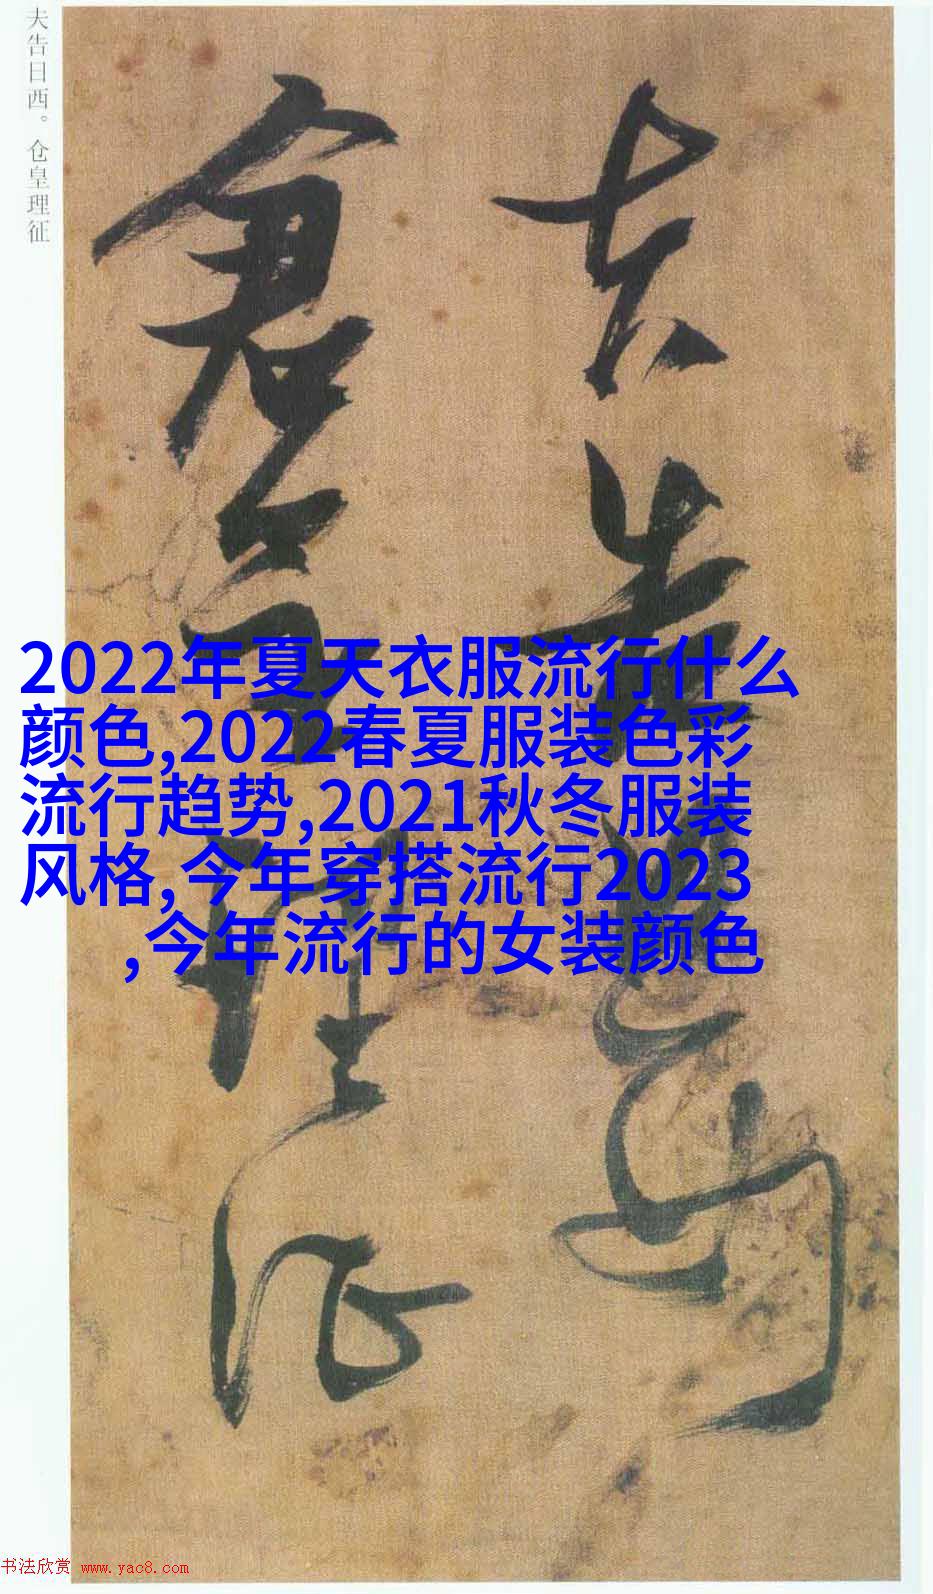 夫告日西。仓皇理征
夫告日西
仓皇理征
2022年夏天衣服流行什么
颜色,2022春夏服装色彩
流行趋势,2021秋冬服装
风格,今年穿搭流行2023
,今年流行的女装颜色
书法欣赏 www.yac8.com